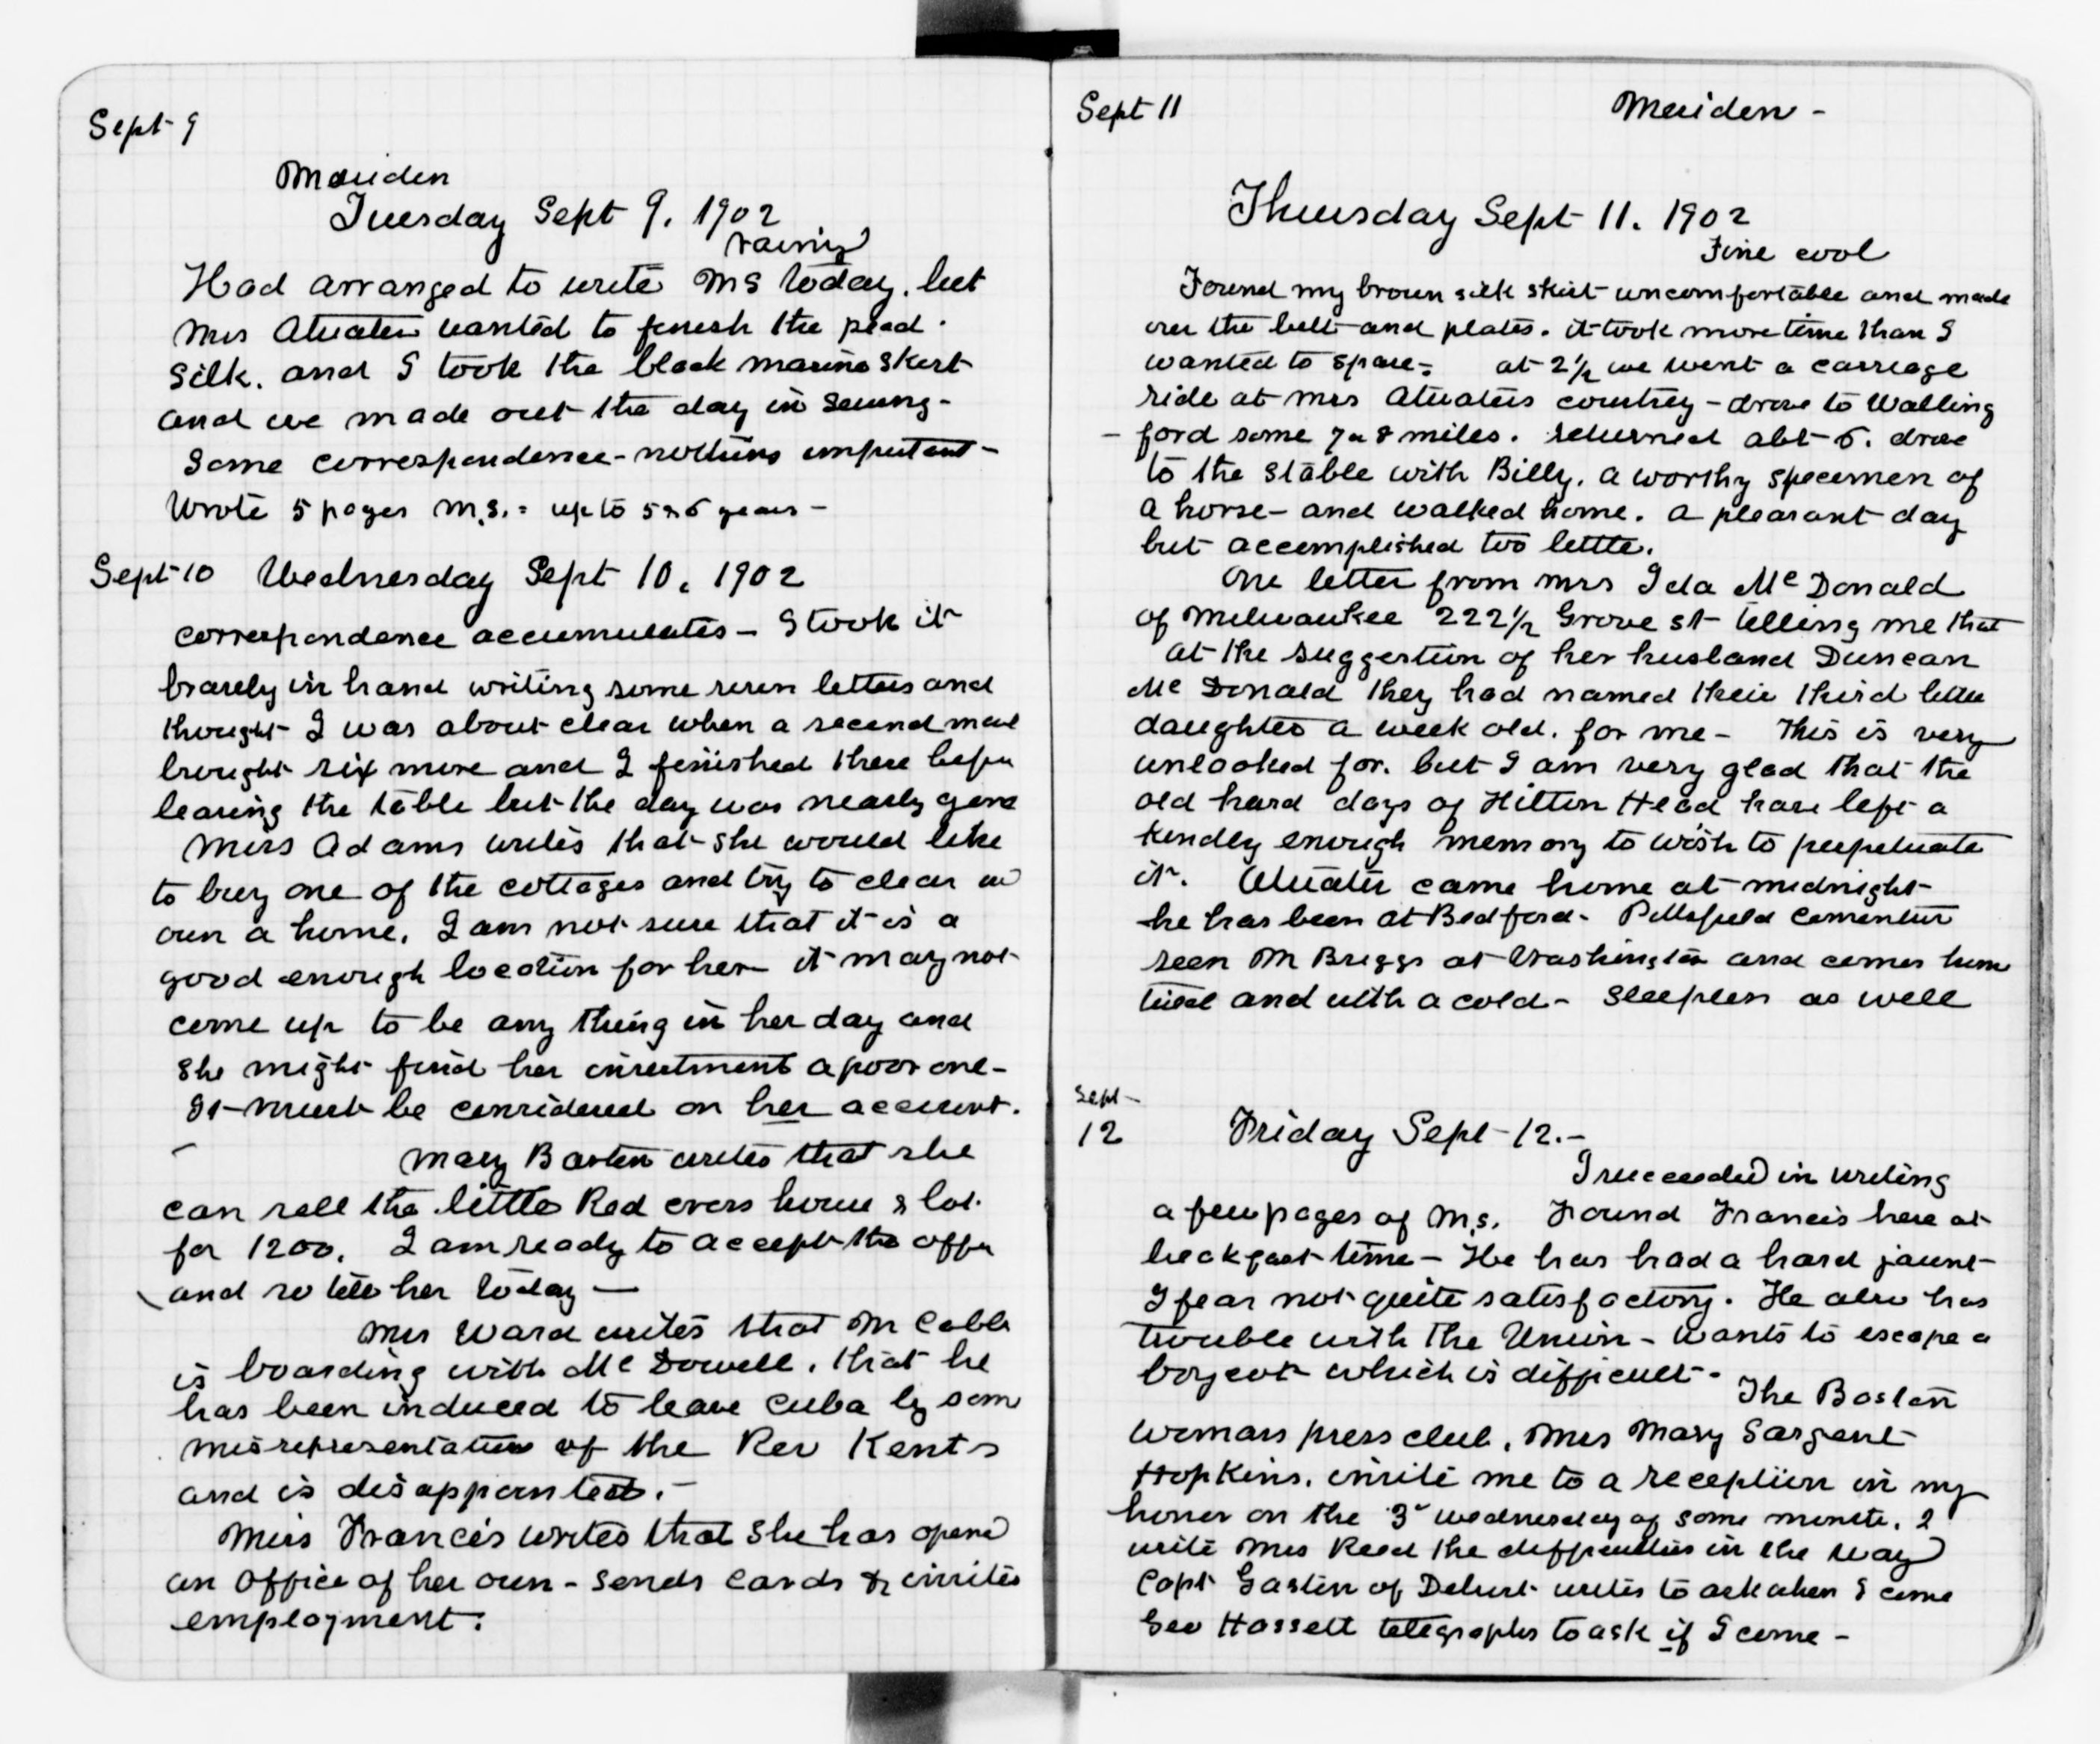 Sept 9
Meriden
Tuesday Sept 9. 1902
rainy
Had arranged to write MS today. but
Mrs Atwater wanted to finish the plad
silk. and I took the black marino skirt
and we made out the day in sewing-
Some correspondence - nothing important -
Wrote 5 pages M.S. = up to 5 or 6 years -
Sept 10 Wednesday Sept 10. 1902
correspondence accumulates - I took it
bravely in hand writing some seven letters and
thought I was about clear when a second mail
brought six more and I finished these before
leaving the table but the day was nearly gone
Miss Adams writes that she would like
to buy one of the cottages and try to clear and
own a home. I am not sure that it is a
good enough location for her - it may not
come up to be any thing in her day and
she might find her investment a poor one -
It must be considered on her account.
Mary Barton writes that she
can sell the little Red cross house & lot.
for 1200. I am ready to accept the offer
and so tell her today —
Mrs Ward writes that Mr Cobb
is boarding with Mc Dowell. that he
has been induced to leave Cuba by some
misrepresentation of the Rev Kents
and is disappointed. -
Miss Francis writes that she has opened
an office of her own - sends cards & invites
employment.
Sept 11 Meriden -
Thursday Sept 11. 1902
Fine cool
Found my brown silk skirt uncomfortable and made
over the belt and plates. it took more time than I
wanted to spare - at 2 1/2 we went a carriage
ride at Mrs Atwaters courtesy - drove to Walling
- ford some 7 or 8 miles. returned abt 6. drove
to the stable with Billy. a worthy specimen of
a horse - and walked home. a pleasant day
but accomplished too little.
One letter from Mrs Ida Mc Donald
of Milwaukee 222 1/2 Grove st telling me that
at the suggestion of her husband Duncan
Mc Donald they had named their third little
daughter a week old. for me - This is very
unlooked for. but I am very glad that the
old hard days of Hilton Head have left a
kindly enough memory to wish to perpetuate
it. Atwater came home at midnight
he has been at Bedford - Pittsfield
seen Mr Briggs at Washington and comes home
tired and with a cold - sleepless as well
Sept -
12 Friday Sept 12. -
I succeeded in writing
a few pages of M.S. Found Francis here at
breakfast time - He has had a hard jaunt
I fear not quite satisfactory. He also has
trouble with the Union - wants to escape a
boycot which is difficult -
The Boston
womans press club, Mrs Mary Sargent
Hopkins. invite me to a reception in my
honor on the 3d wednesday of some month. I
write Mrs Read the difficulties in the way
Capt Gaston of writes to ask when I come
Geo Hassett telegraphs to ask if I come -